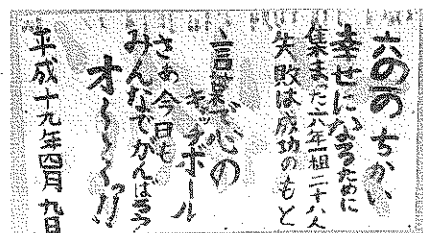 六の ちかい
幸せになるために
集まった六年一組二十八人
失敗は成功のもと
言葉で心の
キャッチボール
さあ今日も
みんなでがんばろう
オ〜〜〜っ!!
平成十九年四月九日